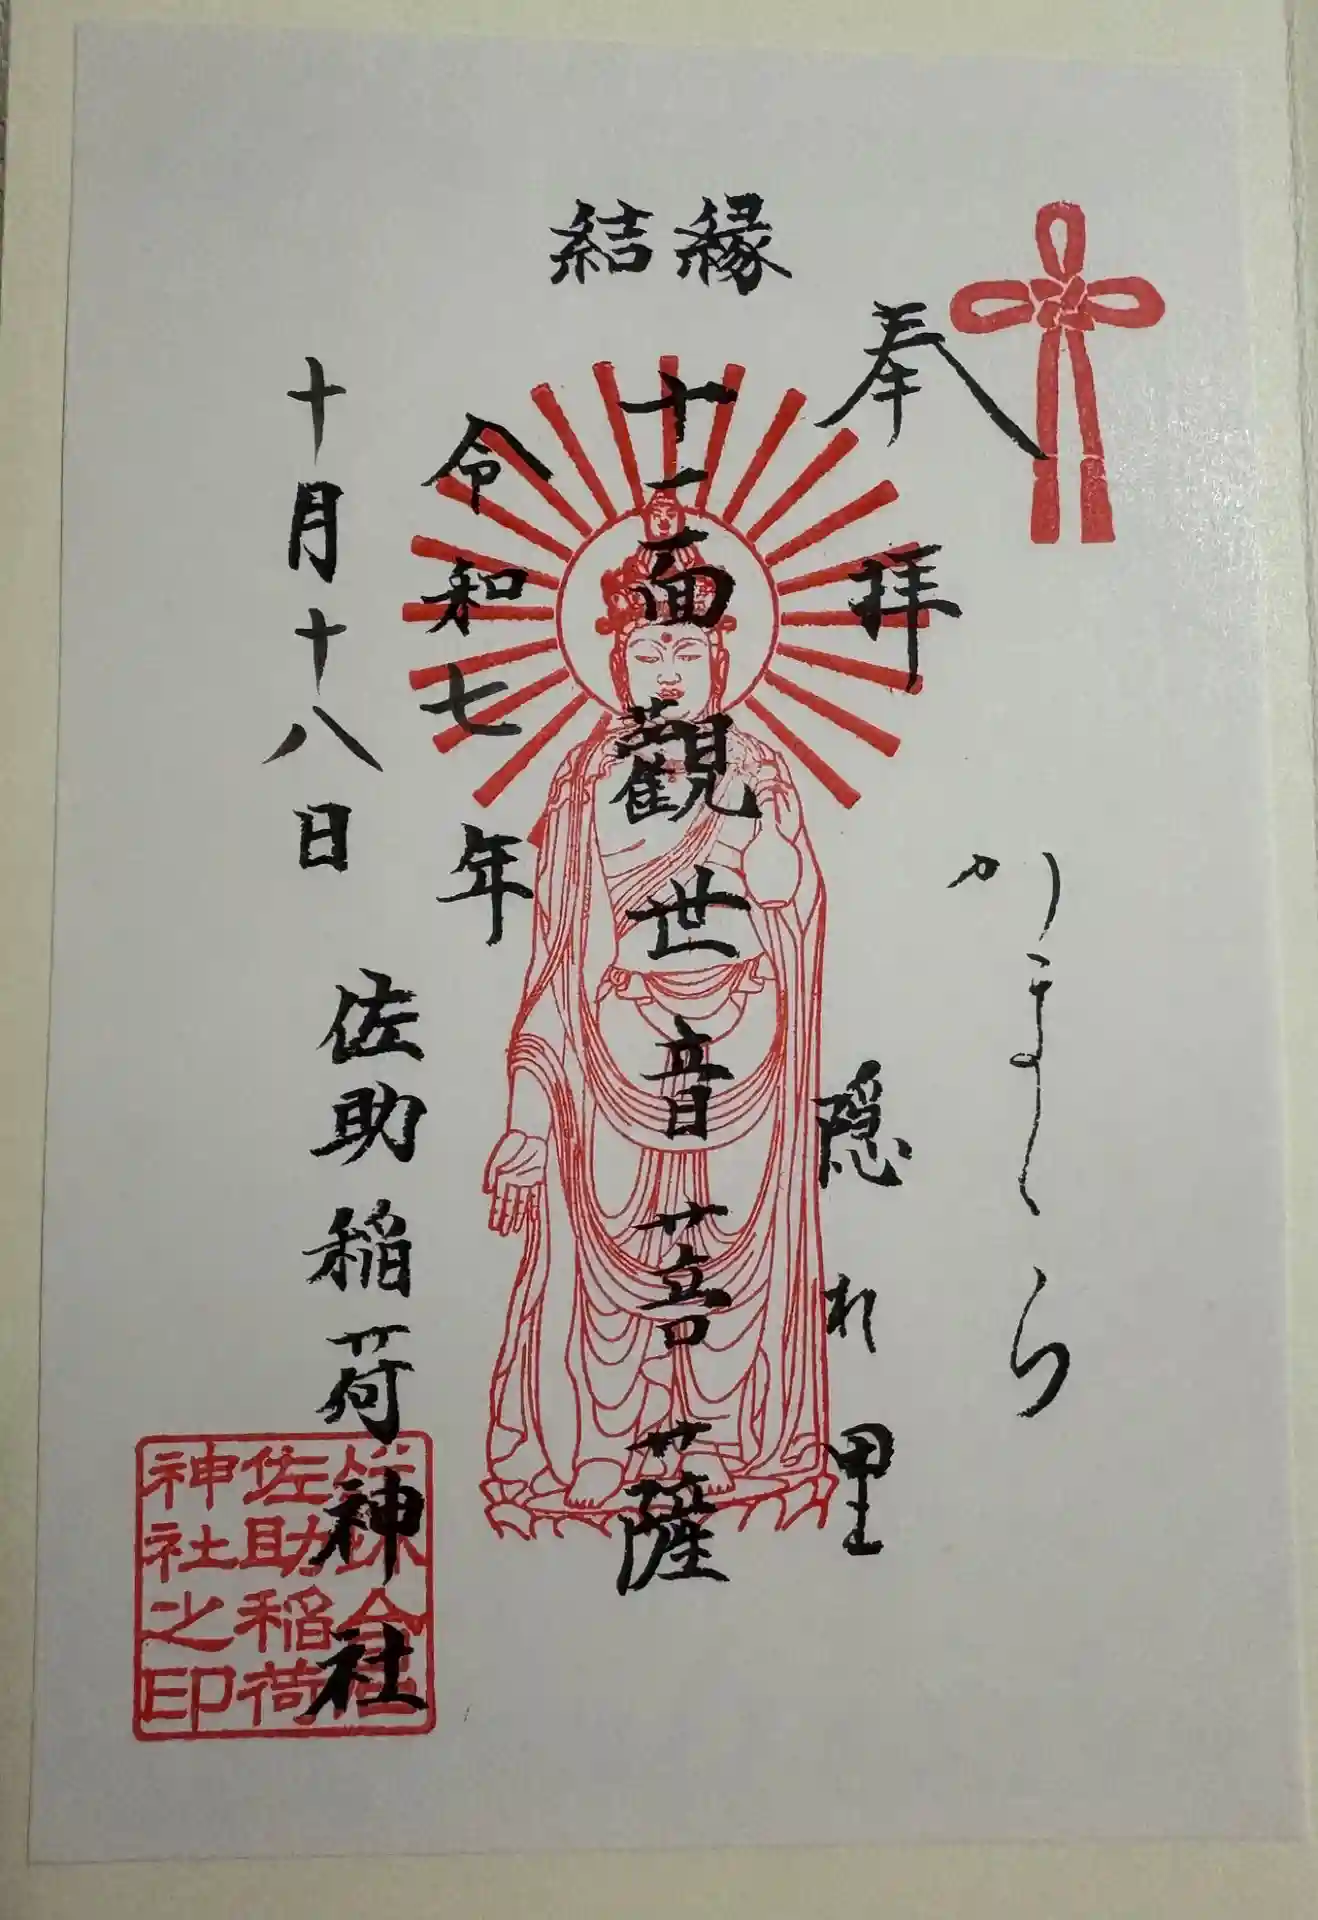 縁結
かまくら
奉拝
隠れ里
十一面觀世音菩薩
令和七年
十月十八日
佐助稲荷神社
鎌倉
佐助稲荷
神社之印